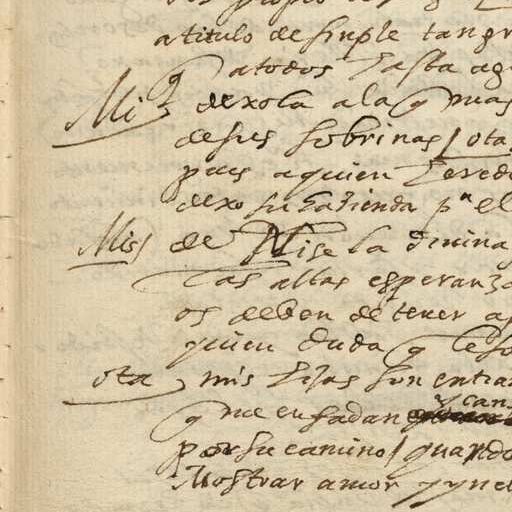 a titulo de simple tan gr
q a todos hasta aq
Mi dexola a la q mas
de sus sobrinas / ota
pues a quien hered
dexo su hazienda pa el
Mis / de Nise la divina
las altas esperanza
os deben de tener a
quien duda q le so
ota mis hijas son entra
q me enfadan y can
por su camino / quando
Mostrar amor y